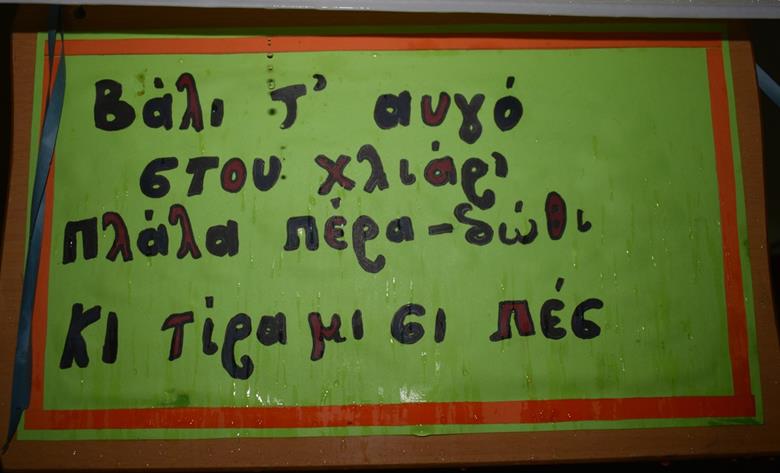 Βάλι τ' αυγό
στου χλιάρ'
πλάλα πέρα-δώθι
κι τίρα μι σι πές